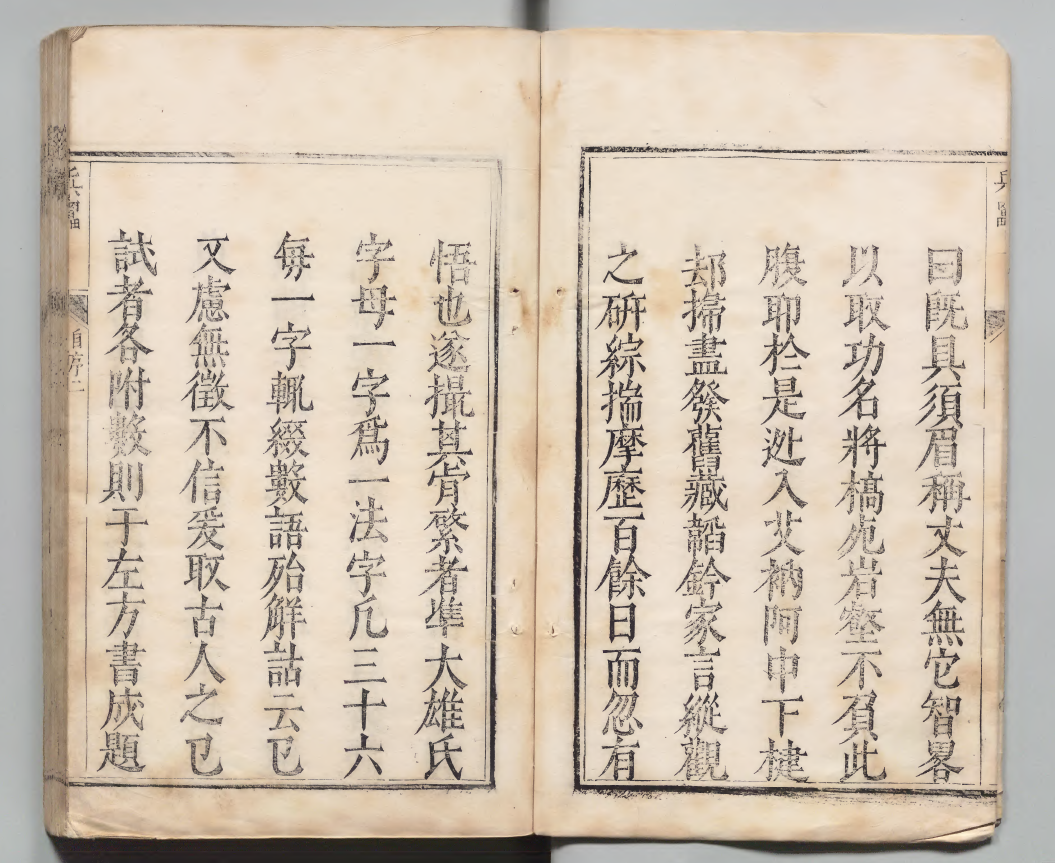 曰旣具須眉稱丈夫無它智畧
以取功名將槁死岩壑不負此
腹耶於是迯入艾衲阿中下楗
却掃盡發舊藏韜鈐家言縱觀
之硏綜揣摩歷百餘日而忽有
悟也遂撮其肯綮者準大雄氏
字母一字爲一法字凡三十六
每一字輒綴數語殆解詁云已
又慮無徵不信爰取古人之已
試者各附數則于左方書成題
兵畾
自序二